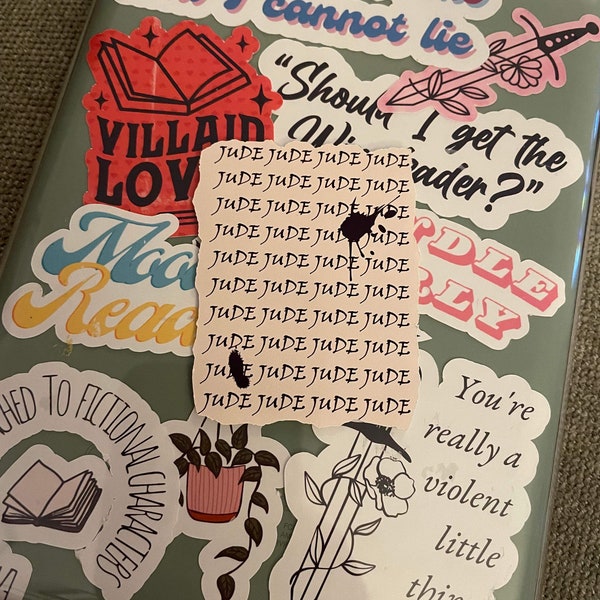 I cannot lie
VILLAIN
LOV
"Should I get the
Wi eader?"
JUDE JUDE JUDE JUDE
JUDE JUDE JUDE JUDE
JUDE JUDE JUDE JUDE
JUDE JUDE JUDE JUDE
JUDE JUDE JUDE JUDE
JUDE JUDE JUDE JUDE
JUDE JUDE JUDE JUDE
JUDE JUDE JUDE JUDE
JUDE JUDE JUDE JUDE
JUDE JUDE JUDE JUDE
Moo
Read
NDLE
BLY
HED TO FICTIONAL CHARACTERS
You're
really a
violent
little
thin